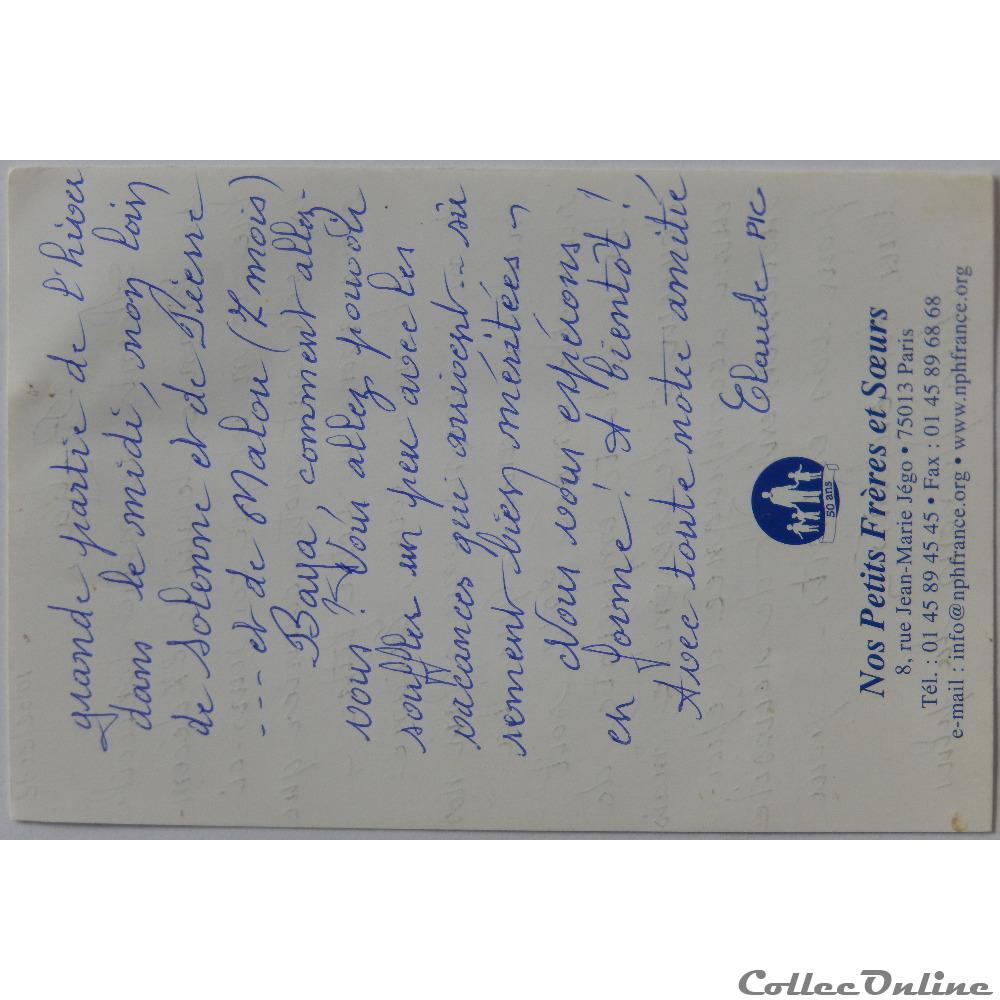 grande partie de l'hiver
dans le midi, non loin
de Solenne et de Pierre
--- et de Malou (7 mois)
Baya, comment allez-
vous ? Vous allez pouvoir
souffler un peu avec les
vacances qui arrivent... sû
rement bien méritées -
Nous vous espérons
en forme ! A bientôt !
Avec toute notre amitié
Claude PIC
50 ans
Nos Petits Frères et Sœurs
8, rue Jean-Marie Jégo • 75013 Paris
Tél. : 01 45 89 45 45 • Fax : 01 45 89 68 68
e-mail : info@nphfrance.org • www.nphfrance.org
CollecOnline